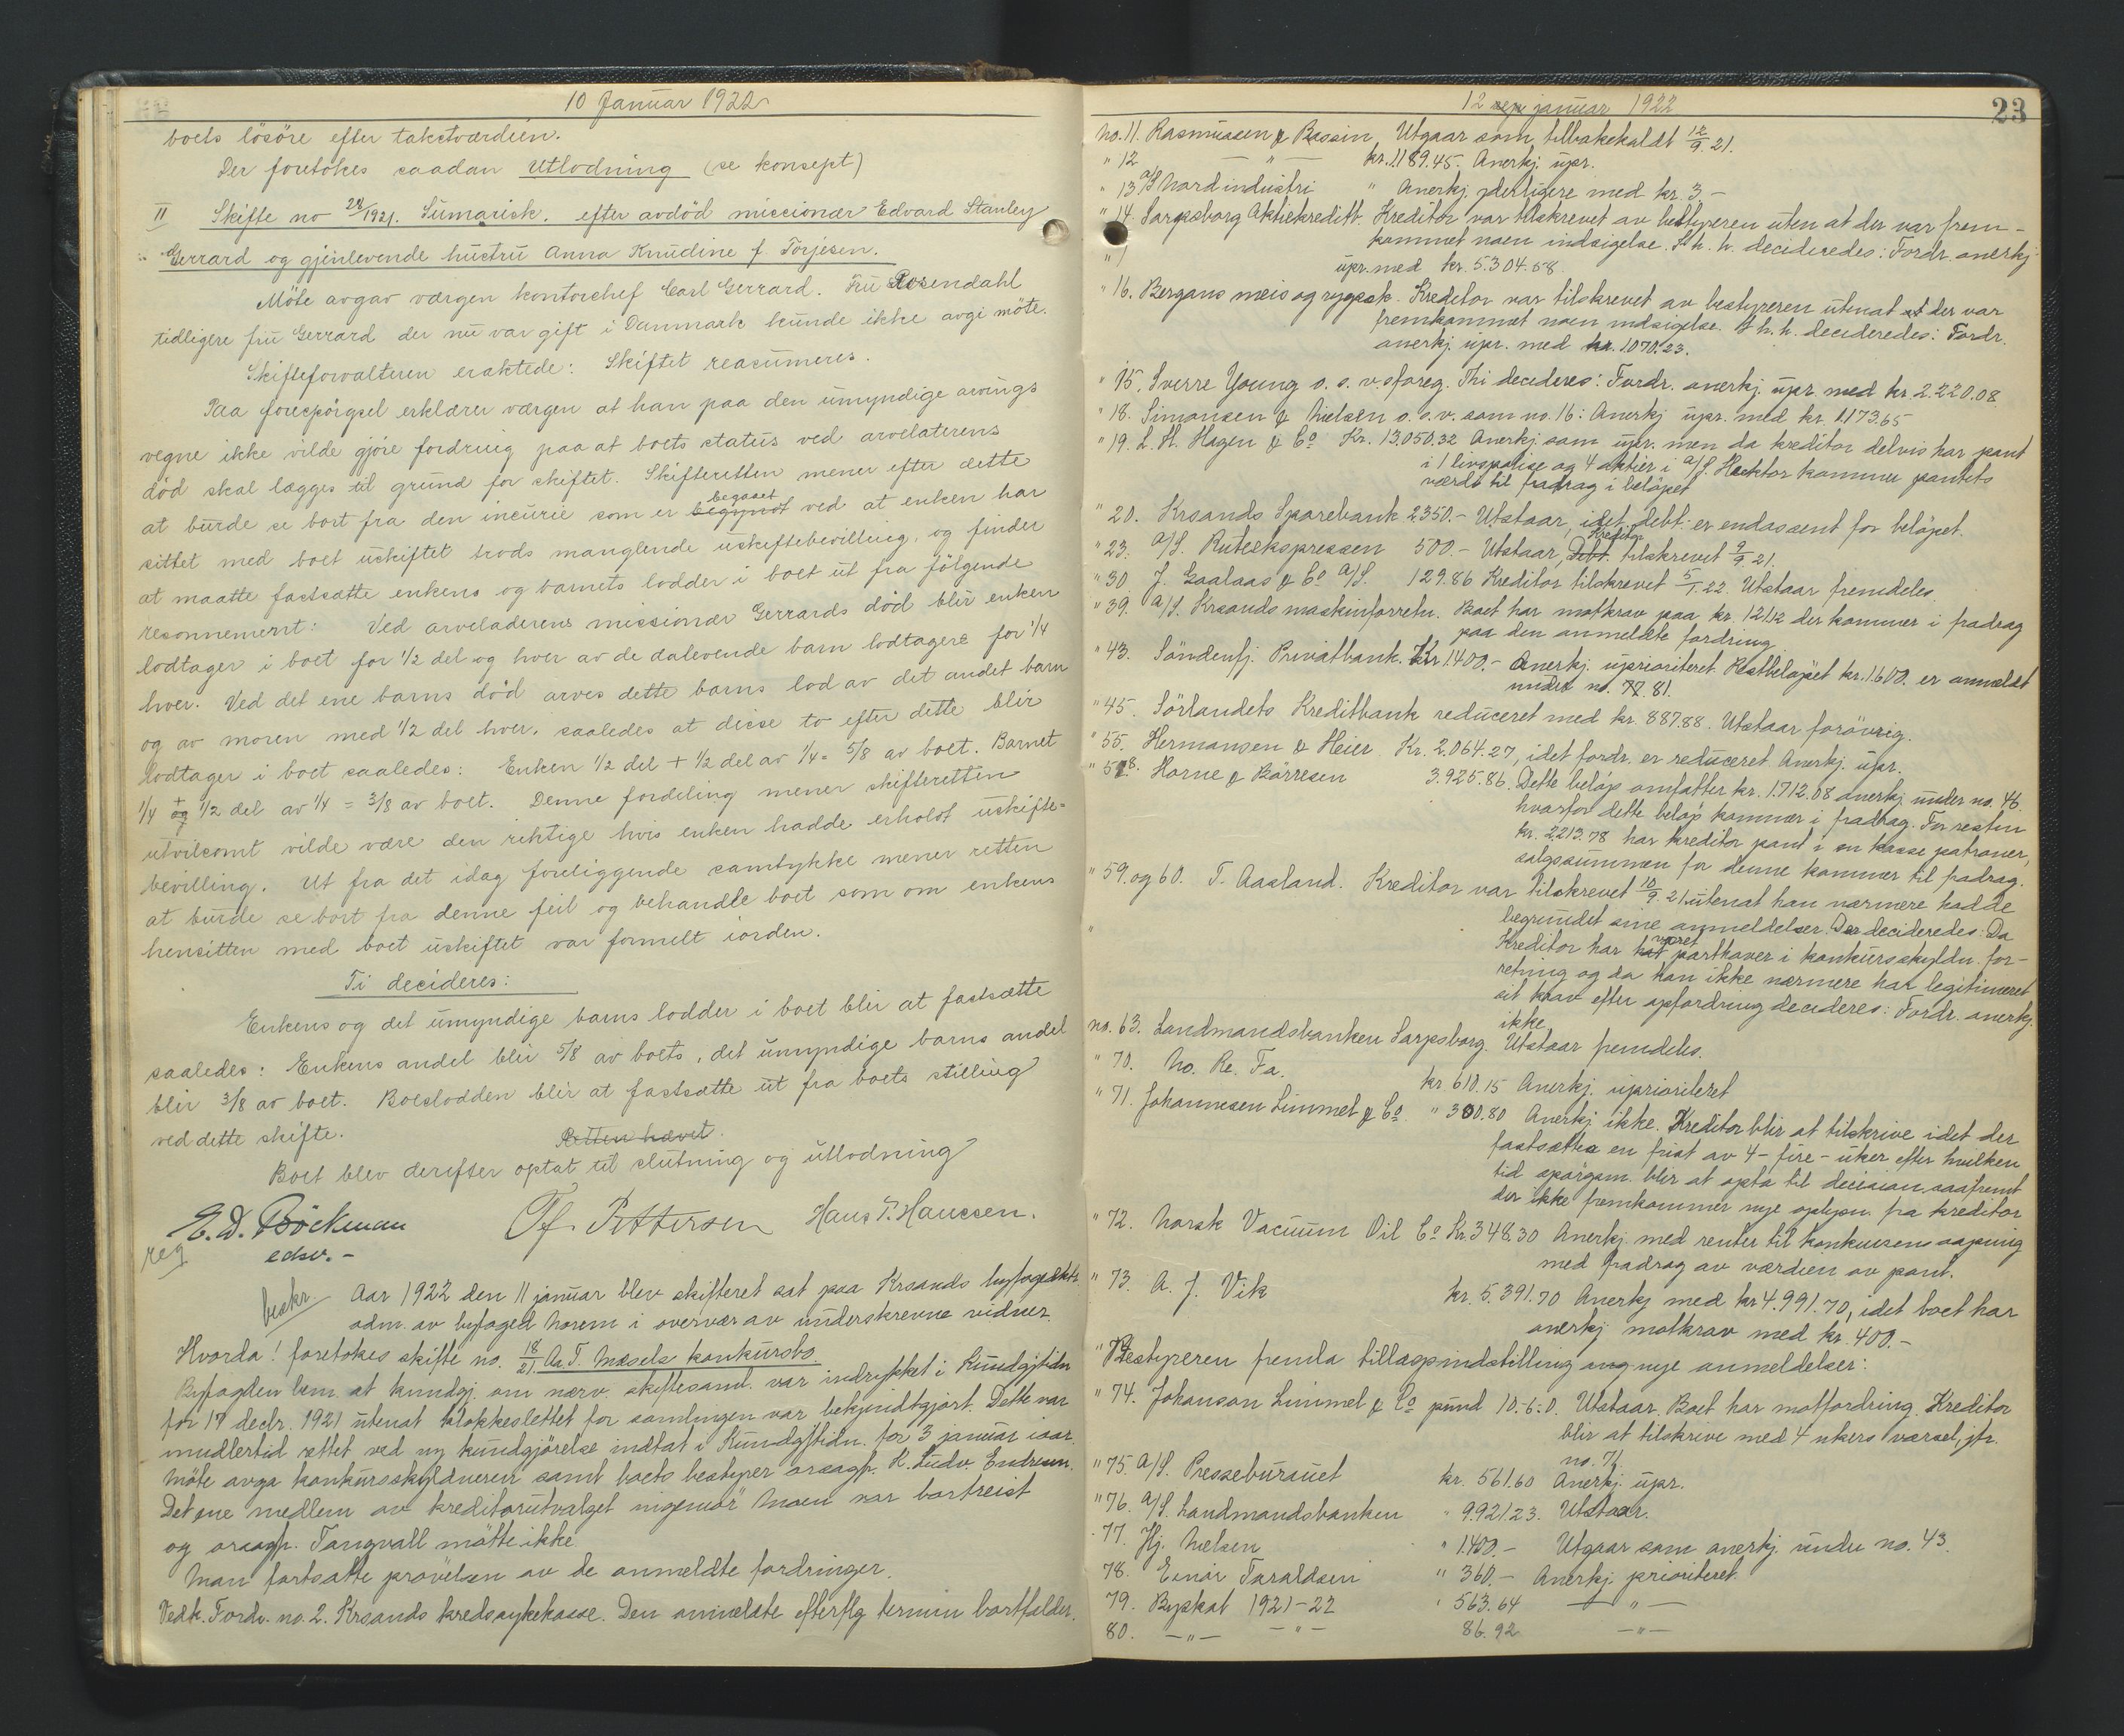 10 Januar 1922
boets lösöre efter takstværdien.
Der foretokes saadan Utlodning (se konsept)
II Skifte no 28/1921. Sumarisk. efter avdöd missionær Edvard Stanley
Gerrard og gjenlevende hustru Anna Knudine f. Torjesen.
Möte avgav værgen kontorchef Carl Gerrard. Fru Rosendahl
tidligere fru Gerrard der nu var gift i Danmark kunde ikke avgi möte.
Skifteforvalteren eraktede: Skiftet reasumeres.
Paa forespörgsel erklærer værgen at han paa den umyndige arvings
vegne ikke vilde gjöre fordring paa at boets status ved arvelaterens
död skal lægges til grund for skiftet. Skifteretten mener efter dette
at burde se bort fra den incurie som er begyndt begaaet ved at enken har
sittet med boet uskiftet trods manglende uskiftebevilling, og finder
at maatte fastsætte enkens og barnets lodder i boet ut fra fölgende
resonnement: Ved arveladerens missionær Gerrards död blir enken
lodtager i boet for 1/2 del og hver av de dalevende barn lodtagere for 1/4
hver. Ved det ene barns död arves dette barns lod av det andet barn
og av moren med 1/2 del hver, saaledes at disse to efter dette blir
lodtager i boet saaledes: Enken 1/2 del + 1/2 del av 1/4 = 5/8 av boet. Barnet
1/4 + 1/2 del av 1/4 = 3/8 av boet. Denne fordeling mener skifteretten
utvilsomt vilde være den riktige hvis enken hadde erholdt uskifte-
bevilling. Ut fra det idag foreliggende samtykke mener retten
at burde se bort fra denne feil og behandle boet som om enkens
hensitten med boet uskiftet var formelt iorden.
Ti decideres:
Enkens og det umyndige barns lodder i boet blir at fastsætte
saaledes: Enkens andel blir 5/8 av boets, det umyndige barns andel
blir 3/8 av boet. Boeslodden blir at fastsætte ut fra boets stilling
ved dette skifte.
Retten hævet.
Boet blev derefter optat til slutning og utlodning
E. D. Böckman Tf. Pettersen Hans P. Hanssen.
edsv. -
reg
beskr. Aar 1922 den 11 januar blev skifteret sat paa Krsands byfogedkt.
adm. av byfoged Norem i overvær av underskrevne vidner.
Hvorda! foretokes skifte no. 18/21. Aa. T. Mæsels konkursbo.
Byfogden bem. at kundgj. om nærv. skiftesaml. var indrykket i Kundgjtidn
for 17 decbr. 1921 utenat klokkeslettet for samlingen var bekjendtgjort. Dette var
imidlertid rettet ved ny kundgjörelse indtat i Kundgjtidn. for 3 januar iaar.
Möte avga konkursskyldneren samt boets bestyrer orsagf. K. Ludv. Endresen.
Det ene medlem av kreditorutvalget ingeniör Moen var bortreist
og orsagf. Tangvall mötte ikke.
Man fortsatte prövelsen av de anmeldte fordringer.
Vedk. Fordr. no. 2. Krsands kredssykekasse. Den anmeldte efterflg termin bortfalder.
12 januar 1922 23
no. 11. Rasmussen & Bassin, Utgaar som tilbakekaldt 12/9.21.
" 12 — " — kr. 1189.45. Anerkj. upr.
" 13 A/S Nordindustri " Anerkj. yderligere med kr. 3,-
" 14. Sarpsborg Aktiekreditb. Kreditor var tilskrevet av bestyreren uten at der var frem-
kommet noen indsigelse. S. h. h. decideredes: Fordr. anerkj
upr. med kr. 5.304.58.
" 16. Bergans meis og rygsæk. Kreditor var tilskrevet av bestyreren utenat der var
fremkommet noen indsigelse. S. h. h. decideredes: Fordr.
anerkj. upr. med kr. 1070.23.
" 15. Sverre Young o. s. v. sforeg. Thi decideres: Fordr. anerkj. upr. med kr. 2.220.08
" 18. Simonsen & Nielsen o. s. v. som no. 16: Anerkj upr. med kr. 1.173.65
" 19. L. H. Hagen & Co Kr. 13.050.32 Anerkj. som upr. men da kreditor delvis har pant
i 1 livspolise og 4 aktier i A/S. Hecktor kommer pantets
værdi til fradrag i belöpet
" 20. Krsands Sparebank 2350.- Utstaar, idet debt. er endossent for belöpet.
" 23. A/S. Rutekspressen 500.- Utstaar, Debt. Kreditor tilskrevet 9/9.21.
" 30 J. Gaalaas & Co A/S. 129.86 Kreditor tilskrevet 5/1.22. Utstaar fremdeles.
" 39. A/S. Krsands maskinforretn. Boet har motkrav paa kr. 121.12 der kommer i fradrag
paa den anmeldte fordring
" 43. Söndenfj. Privatbank. Kr 1.400.- Anerkj. uprioriteret. Restbelöpet kr. 1.600. er anmeldt
under no. 81.
" 45. Sörlandets Kreditbank reduceret med kr. 887.88. Utstaar forövrig.
" 55. Hermansen & Heier Kr. 2.064.27, idet fordr. er reduceret. Anerkj. upr.
" 58. Horne & Börresen 3.925.86. Dette belöp omfatter kr. 1.712.08 anerkj. under no. 46
hvorfor dette belöp kommer i fradrag. For resten
kr. 2213.78 har kreditor pant i en kasse patroner,
salgssummen for denne kommer til fradrag.
" 59. og 60. T. Aasland. Kreditor var tilskrevet 10/9.21 utenat han nærmere hadde
begrundet sine anmeldelser. Der decideredes: Da
Kreditor har hat været parthaver i konkursskyldn. for-
retning og da han ikke nærmere har legitimeret
sit krav efter opfordring decideres: Fordr. anerkj.
ikke
no. 63. Landmandsbanken Sarpsborg. Utstaar fremdeles.
" 70. No. Re. Fa. kr 610.15 Anerkj. uprioriteret
" 71. Johannesen Limmel & Co. " 300.80 Anerkj ikke. Kreditor blir at tilskrive idet der
fastsættes en frist av 4 - fire - uker efter hvilken
tid spörgsm. blir at opta til decision, saafremt
der ikke fremkommer nye oplysn. fra kreditor
" 72. Norsk Vacuum Oil Co Kr. 348.30 Anerkj. med renter til konkursens aapning
med fradrag av værdien av pant.
" 73. A. J. Vik kr. 5.391.70 Anerkj med kr 4.991.70, idet boet har
anerkj motkrav med kr. 400.-
Bestyreren fremla tillægsindstilling ang nye anmeldelser:
" 74. Johanson Limmel & Co pund 10.-6:0. Utstaar. Boet har motfordring. Kreditor
blir at tilskrive med 4 ukers varsel, jfr.
no. 71
" 75. A/S. Pressebürauet kr. 561.60 Anerkj. upr.
" 76. A/S. Landmandsbanken " 9.921.23. Utstaar.
" 77. Hj. Nielsen " 1.400.- Utgaar som anerkj. under no. 43.
78. Einar Taraldsen " 360.- Anerkj. prioriteret.
79. Byskat 1921-22 " 563.64 — " —
80. — " — — " — 86.92 — " —